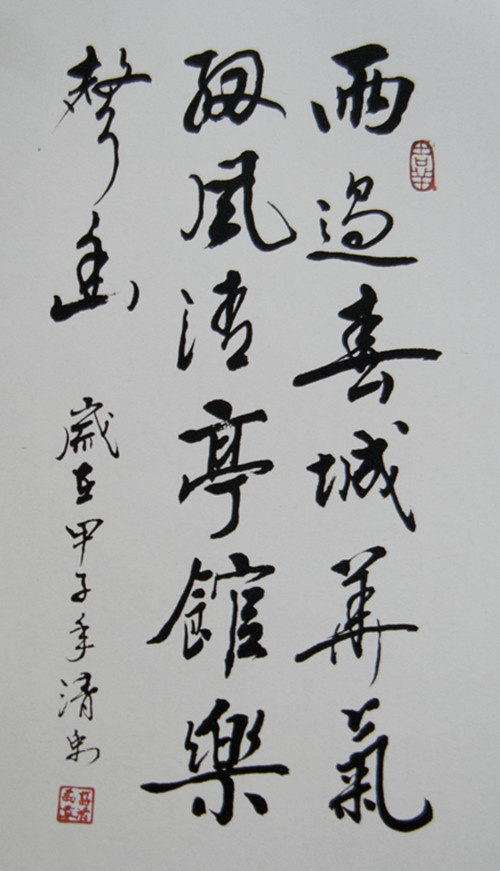 雨過春城華氣
細風清亭館樂
聲幽
歲在甲子年清